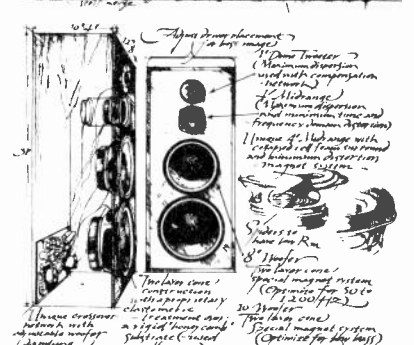 Adjust driver placement
for best image)
1" Dome Tweeter
(Maximum dispersion
used with compensation
network)
Midrange
(Maximum dispersion
and minimum time and
frequency domain distortion)
Unique 4" Midrange with
collapsed cell foam surround
and minimum distortion
magnet system
Spiders to
have low Rm
8" Woofer
Two layer cone
special magnet system
(Optimize for 50 to
1200 Hz)
10" Woofer
Two layer cone
Special magnet system
(Optimise for low bass)
Two layer cone
construction
with a proprietary
elastomeric
treatment over
a rigid 'honeycomb'
Substrate
Unique crossover
network with
woofer